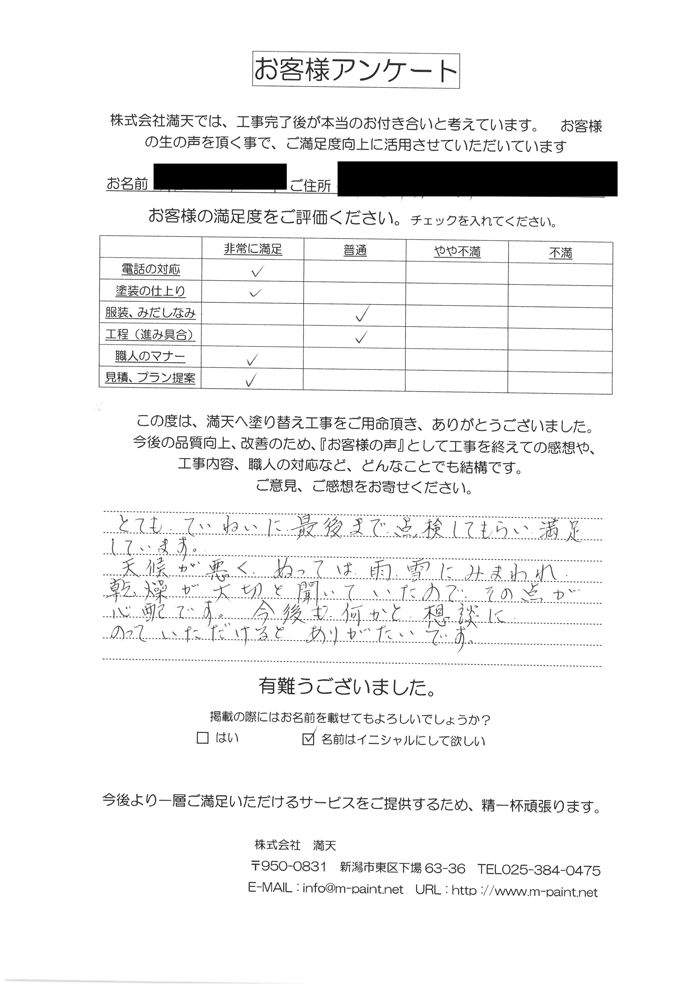 お客様アンケート
株式会社満天では、工事完了後が本当のお付き合いと考えています。　お客様
の生の声を頂く事で、ご満足度向上に活用させていただいています
お名前 ご住所
お客様の満足度をご評価ください。チェックを入れてください。
非常に満足 普通 やや不満 不満
電話の対応 ✓
塗装の仕上り ✓
服装、みだしなみ ✓
工程（進み具合） ✓
職人のマナー ✓
見積、プラン提案 ✓
この度は、満天へ塗り替え工事をご用命頂き、ありがとうございました。
今後の品質向上、改善のため、『お客様の声』として工事を終えての感想や、
工事内容、職人の対応など、どんなことでも結構です。
ご意見、ご感想をお寄せください。
とても、ていねいに最後まで点検してもらい満足
しています。
天候が悪く、ぬっては雨、雪にみまわれ、
乾燥が大切と聞いていたので、その点が
心配です。今後も何かと想談に
のっていただけるとありがたいです。
有難うございました。
掲載の際にはお名前を載せてもよろしいでしょうか？
□ はい ☑ 名前はイニシャルにして欲しい
今後より一層ご満足いただけるサービスをご提供するため、精一杯頑張ります。
株式会社　満天
〒950-0831　新潟市東区下場 63-36　TEL025-384-0475
E-MAIL：info@m-paint.net　URL：http://www.m-paint.net